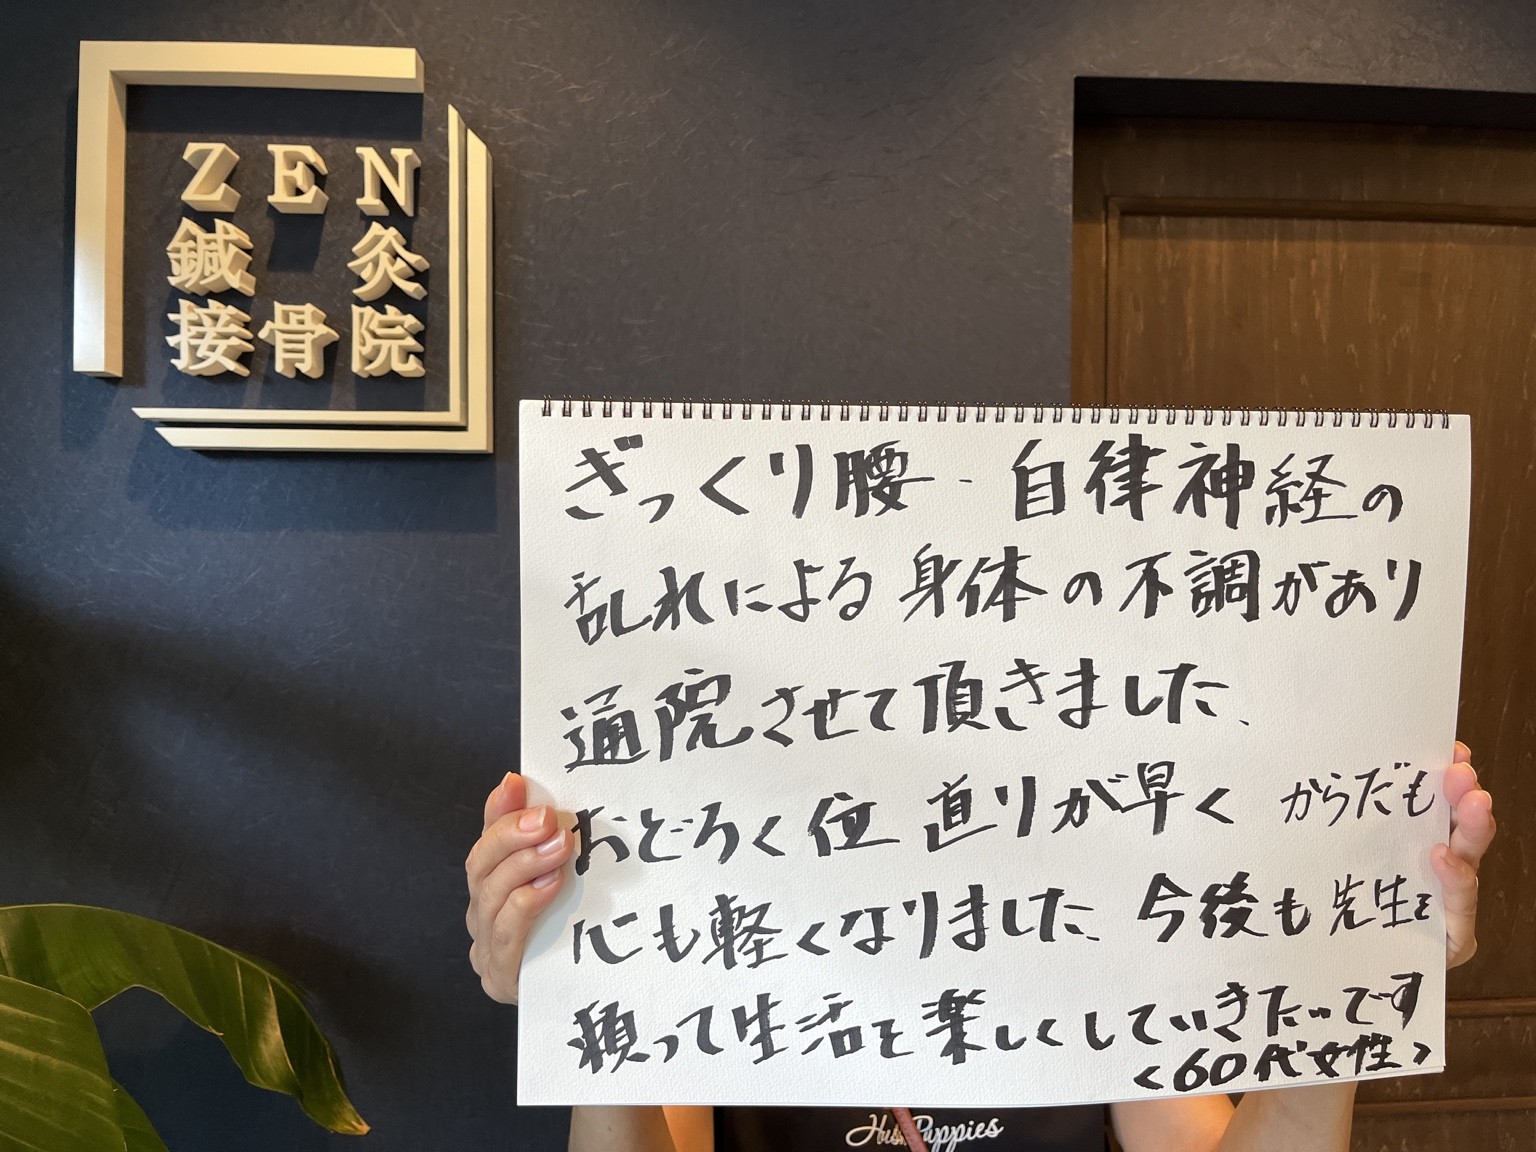 ZEN
鍼灸
接骨院
ぎっくり腰・自律神経の
乱れによる身体の不調があり
通院させて頂きました。
おどろく位直りが早く からだも
心も軽くなりました。今後も先生を
頼って生活を楽しくしていきたいです
<60代女性>
Hush Puppies